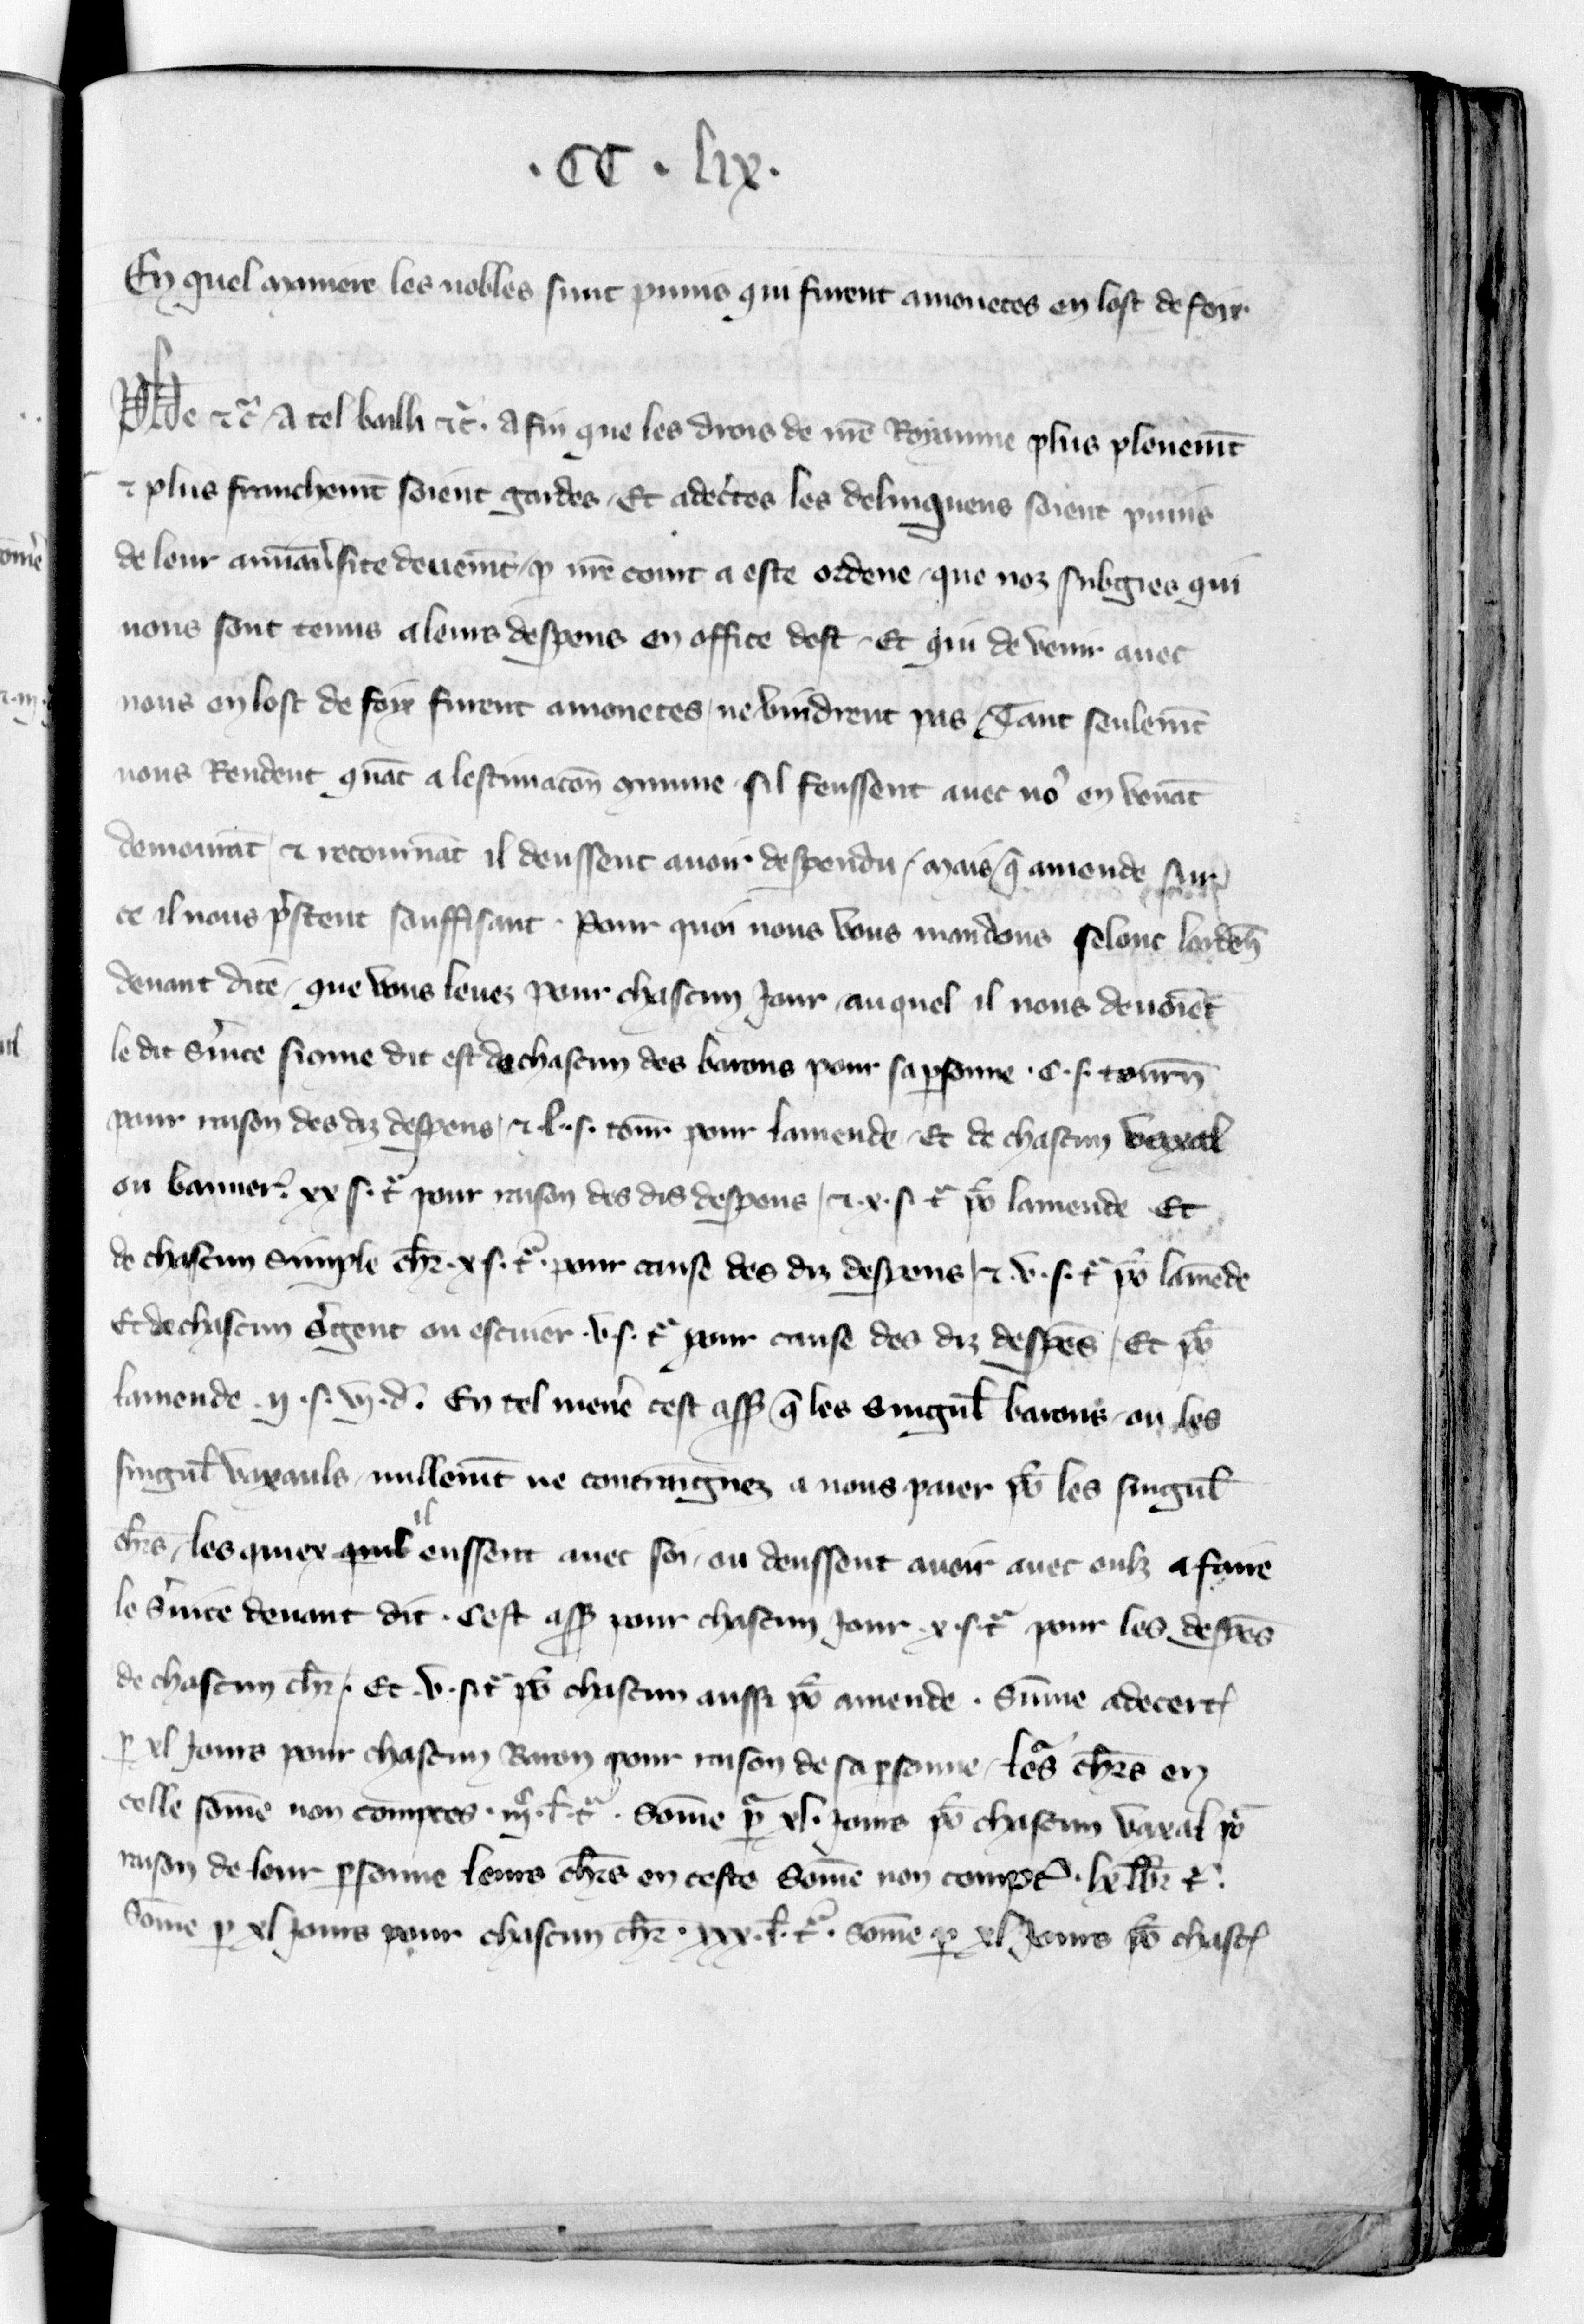 · CC · lix ·
En quel maniere les nobles sunt punis qui furent amonetes en lost de foix.
Phe etc̃. A tel bailli etc̃. Afin que les drois de nr̃e Royaume plus plenemt̃
et plus franchemt̃ soient gardes. Et adecertes les delinquens soient punis
de leur devemt̃ / p nr̃e court a este ordene, que noz subgies qui
nous sont tenus a leurs despens en office dost. Et qui de venir avec
nous en lost de foix furent amonetes, ne vindrent pas / Tant seulemt̃
nous Rendent quāt a lestimacōn gmune sil feussent avec no9 en venāt
demourāt / et retournāt il deussent avoir despendu / mais q̃ amende sur
ce il nous p̃stent souffisant. Pour quoi nous vous mandons selonc lorden̄
devant dite, que vous levez pour chascun Jour, auquel il nous devoiēt
le dit s̃vice sicome dit est de chascun des barons pour sa psonne · C · s · tourn̄
pour raison des diz despens / et · l · s · tour̄ pour lamende, Et de chascun vaxal
ou banner̃. xx s · t̃ pour raison des dis despens / et · x · s · t̃ po9 lamende Et
de chascun simple chr̄ · x s · t̃ · pour cause des diz despens / et · v · s · t̃ po9 lamēde
Et de chascun s̃gent ou escuier · v · s · t̃ pour cause des diz despēs / Et po9
lamende · ij · s · vj · d̃. En tel mener̃e cest ass̃ q̃ les singul̃ barons, ou les
singul̃ vaxauls, nullemt̃ ne contraignez a nous paier po9 les singul̃
chr̄s, les quiex quil il eussent avec soi, ou deussent avoir avec eulz a faire
le s̃vice devant dit. Cest ass̃ pour chascun Jour · x · s · t̃ pour les despēs
de chascun chr̄ / · Et · v · s t̃ po9 chascun aussi po9 amende. Sūme adecert̃
p xl Jours pour chascun Baron pour raison de sa psonne, leʳs chr̄s en
celle some non comptes · iijc · l̃ · t̃ · Somē p xl · Jours po9 chascun vaxal po9
raison de leur psonne leurs chr̄s en ceste Somē non compt̃ · lx lb̄r t̃.
Somē p xl Jours pour chascun chr̄ · xxx · l̃ · t̃ · Somē p xl Jours po9 chasc̃